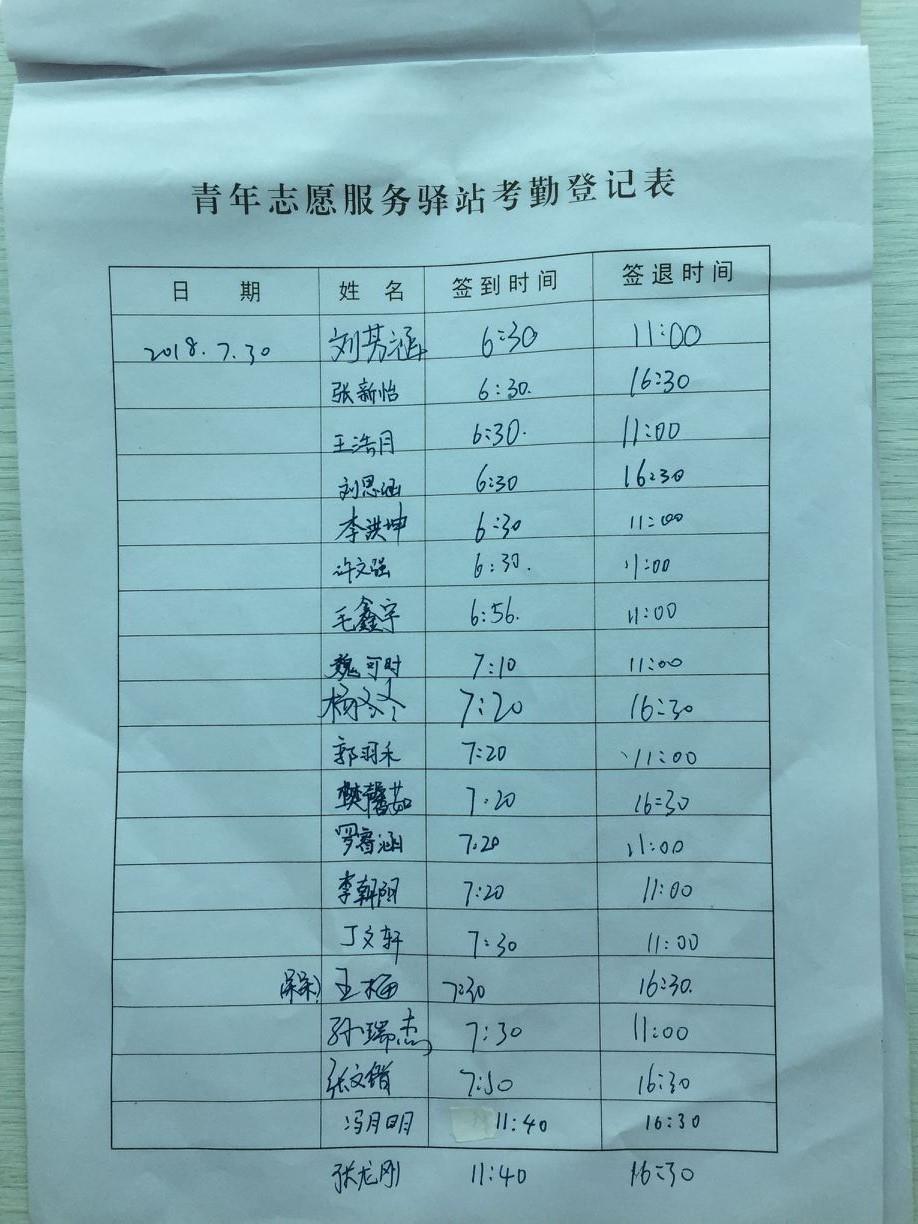 青年志愿服务驿站考勤登记表
日 期 姓 名 签到时间 签退时间
2018.7.30 刘芳涵 6:30 11:00
张新怡 6:30. 16:30
王浩月 6:30. 11:00
刘思涵 6:30 16:30
李洪坤 6:30 11:00
许文强 6:30. 11:00
毛鑫宇 6:56. 11:00
魏可时 7:10 11:00
杨 7:20 16:30
郭羽禾 7:20 11:00
樊馨茹 7.20 16:30
罗睿涵 7.20 11:00
李朝阳 7:20 11:00
丁文轩 7:30 11:00
王梅 7:30 16:30.
孙瑞杰 7:30 11:00
张文错 7:50 16:30
冯月明 11:40 16:30
张龙刚 11:40 16:30